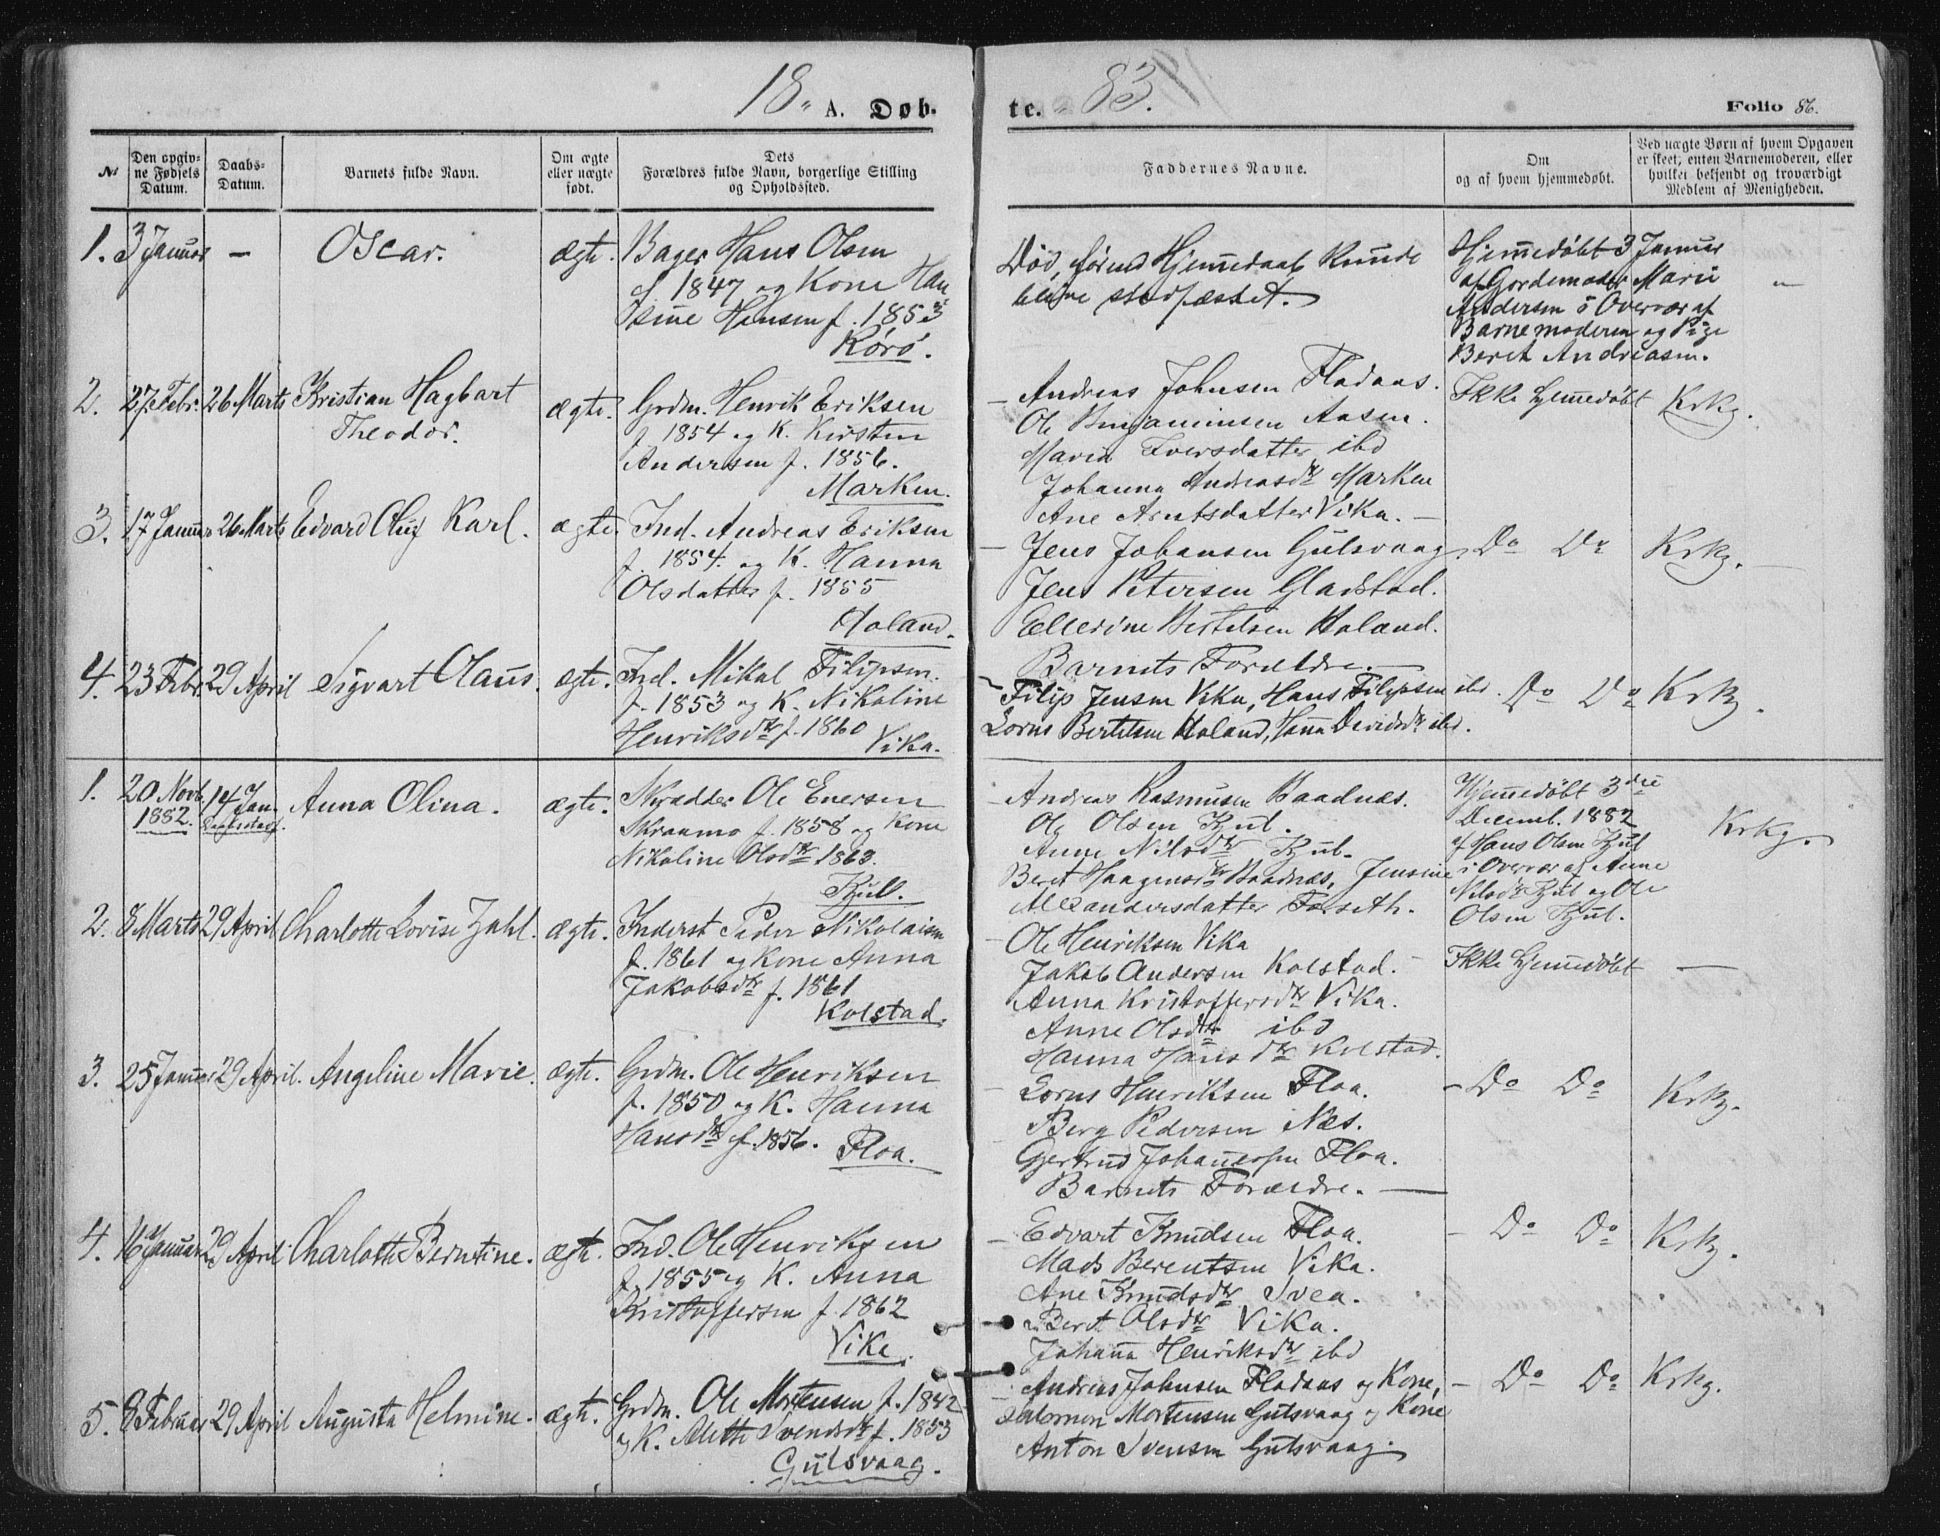 18 A. Døb-
te. 83.
Folio 86.
№
Den opgiv-
ne Fødsels
Datum.
Daabs-
Datum.
Barnets fulde Navn.
Om ægte
eller uægte
født.
Dets
Forældres fulde Navn, borgerlige Stilling
og Opholdssted.
Faddernes Navne.
Om
og af hvem hjemmedøbt.
Ved uægte Børn af hvem Opgaven
er skeet, enten Barnemoderen, eller
hvilket bekjendt og troværdigt
Medlem af Menigheden.
1. 3 Januar — Oscar. ægte.
Bager Hans Olsen
f 1847 og Kone Han
Isine Hansen f. 1853
Kørø.
Død, førend Hjemmedaab kunde
blive stadfæstet.
Hjemmedøbt 3 Januar
af Gordemoder Marie
Andersen i Overvær af
Barnemoderen og Pige
Beret Andreasen.
2. 27 Febr. 26 Marts Kristian Hagbart
Theodor.
ægte.
Grdm. Henrik Eriksen
f. 1854 og K. Kirsten
Andersen f. 1856.
Marken.
Andreas Johnsen Fladaas.
Ole Benjaminsen Aasen.
Maren Iversdatter ibd
Johanna Andreasdtr Marken
Ane Arntsdatter Vika. —
Ikke hjemmedøbt Krkg.
3. 17 Januar 26 Marts Edvard Oluf Karl. ægte.
Ind. Andreas Eriksen
f. 1854 og K. Hanna
Olsdatter f. 1855
Holand.
Jens Johansen Gulsvaag.
Jens Petersen Gladstad.
Ellerine Bertelsen Holand.
Barnets Forældre. —
Do Do Krkg.
4. 23 Febr. 29 April Sigvart Olaus. ægte.
Ind. Mikal Filipsen.
f. 1853 og K. Nikoline
Henriksdtr f. 1860
Vika.
Filip Jensen Vika, Hans Filipsen ibd.
Lorns Bertelsen Holand, Hanna Davidsdtr ibd.
Do Do Krkg.
1. 20 Novb. 1882. 14 Jan. Anna Olina. ægte.
Skrædder Ole Enersen
Skraamo f. 1858 og Kone
Nikoline Olsdtr 1863.
Kjul.
Andreas Rasmusen Baadnæs.
Ole Olsen Kjul.
Anne Nilsdtr Kjul.
Beret Haagensdtr Baadnæs, Jensine
Alexandersdatter Forseth.
Hjemmedøbt 3die
Decemb. 1882
af Hans Olsen Kjul
i Overvær af Anne
Nilsdtr Kjul og Ole
Olsen Kjul.
Krkg.
2. 8 Marts 29 April Charlotte Lovise Zahl. ægte.
Inderst Peder Nikolaisen
f. 1861 og Kone Anna
Jakobsdtr f. 1861
Kolstad.
Ole Henriksen Vika
Jakob Andersen Kolstad. —
Anna Kristoffersdtr Vika.
Anne Olsdtr ibd
Hanna Hansdtr Kolstad.
Ikke hjemmedøbt —
3. 25 Januar 29 April. Angeline Marie. ægte.
Grdm. Ole Henriksen
f. 1850 og K. Hanna
Hansdtr f. 1856.
Floa.
Lorns Henriksen Floa.
Berg Pedersen Næs.
Gjertrud Johannessen Floa.
Barnets Forældre. —
Do Do Krkg.
4. 16 Januar 29 April Charlotte Berntine. ægte.
Ind. Ole Henriksen
f. 1855 og K. Anna
Kristoffersen f. 1862
Vika.
Edvart Knudsen Floa.
Mads Berentsen Vika.
Ane Knudsdtr Svea.
Beret Olsdtr Vika.
Johanna Henriksdtr ibd
Do Do Krkg.
5. 8 Februar 29 April Augusta Helmine. ægte.
Grdm. Ole Mortensen f. 1842
og K. Alette Svendsdtr f. 1853
Gulsvaag.
Andreas Johnsen Fladaas og Kone,
Salomon Mortensen Gulsvaag og Kone
Anton Svensen Gulsvaag.
Do Do Krkg.